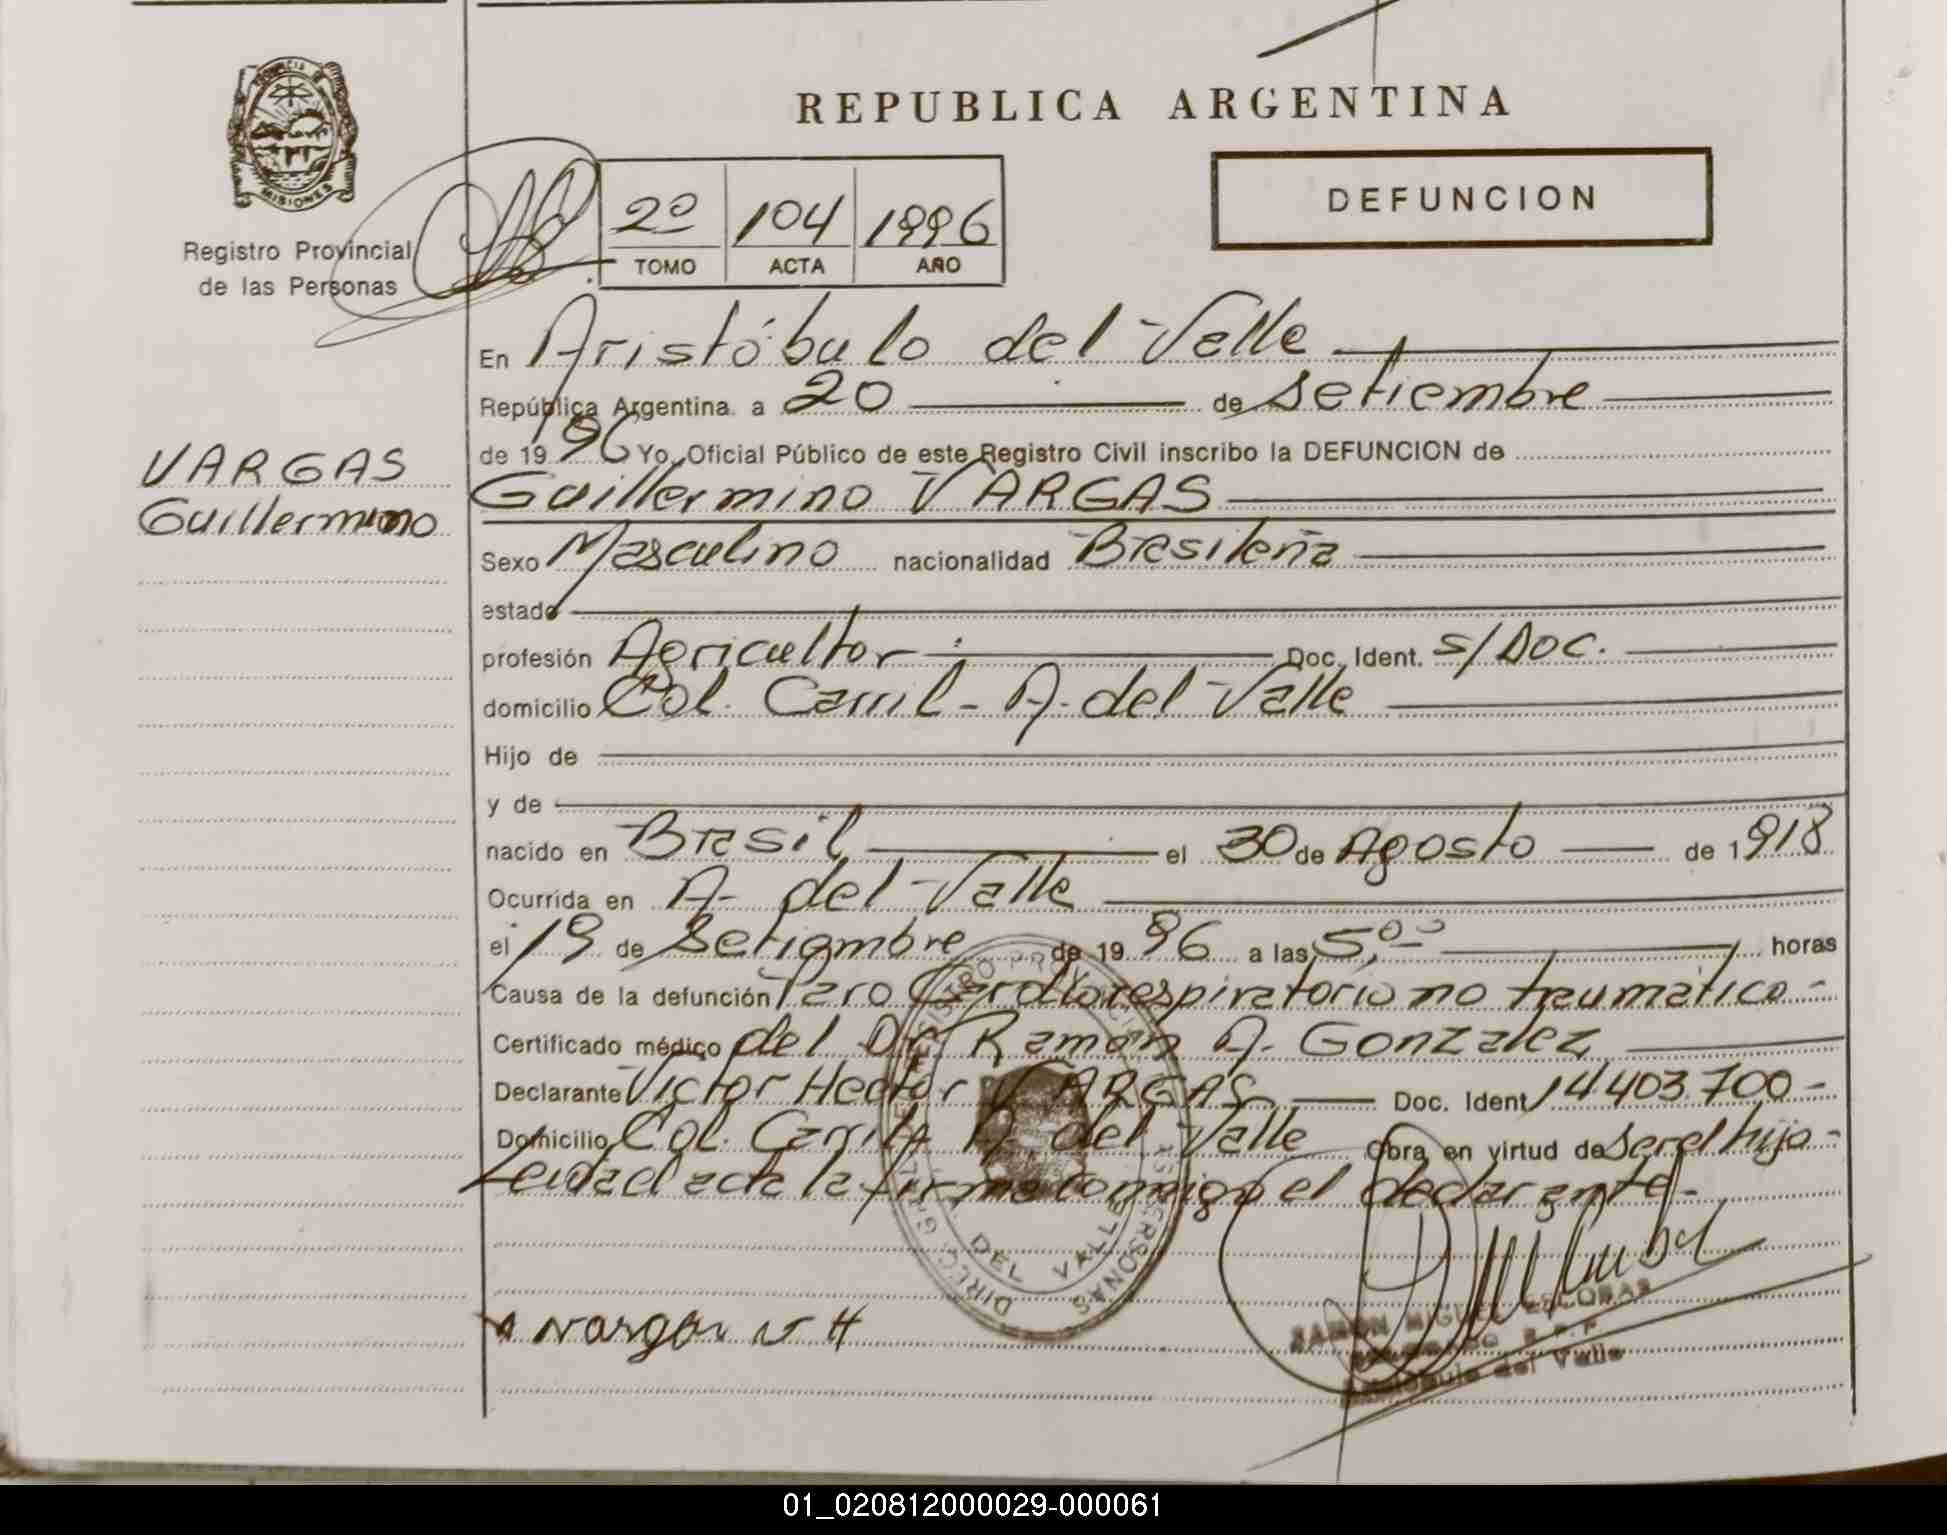 REPUBLICA ARGENTINA
PROVINCIA DE
MISIONES
Registro Provincial
de las Personas
2º 104 1996
TOMO ACTA AÑO
DEFUNCION
En Aristóbulo del Valle
República Argentina a 20 de Setiembre
de 1996 Yo, Oficial Público de este Registro Civil inscribo la DEFUNCION de
VARGAS
Guillermino
Guillermino VARGAS
Sexo Masculino nacionalidad Brasileña
estado
profesión Agricultor Doc. Ident. s/Doc.
domicilio Col. Carril - A. del Valle
Hijo de
y de
nacido en Brasil el 30 de Agosto de 1918
Ocurrida en A. del Valle
el 19 de Setiembre de 1996 a las 5,00 horas
Causa de la defunción Paro Cardiorespiratorio no traumático -
Certificado médico del Dr Ramón A. Gonzalez
Declarante Victor Hector VARGAS Doc. Ident 14.403.700-
Domicilio Col. Carril A. del Valle Obra en virtud de Ser el hijo -
Leida el acta la firma conmigo el declarante -
DEL VALLE
Vargas V H
RAMON MIGUEL ESCOBAR
Aristobulo del Valle
01_020812000029-000061